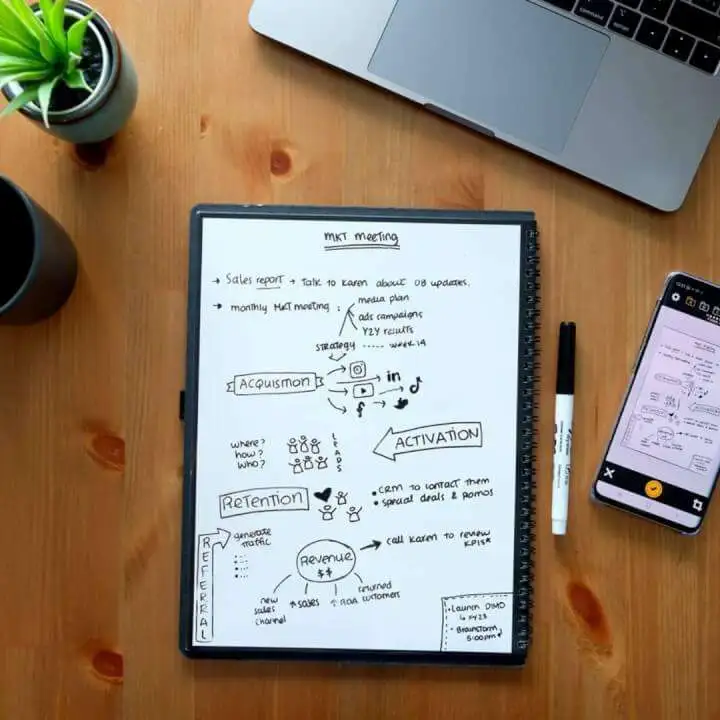 MKT meeting
→ Sales report → Talk to Karen about DB updates.
→ monthly MKT meeting :
media plan
ads campaigns
Y2Y results
STRATEGY ----- week 14
ACQUISITION
in
f
where?
how?
who?
LEADS
ACTIVATION
RETENTION
• CRM to contact them
• special deals & pomos
REFERRAL
generate
traffic
Revenue
$$
→ call Karen to review
new
sales
channel
↑ sales
returned
customers
• Launch
• Brainstorm
5:00pm
command
option